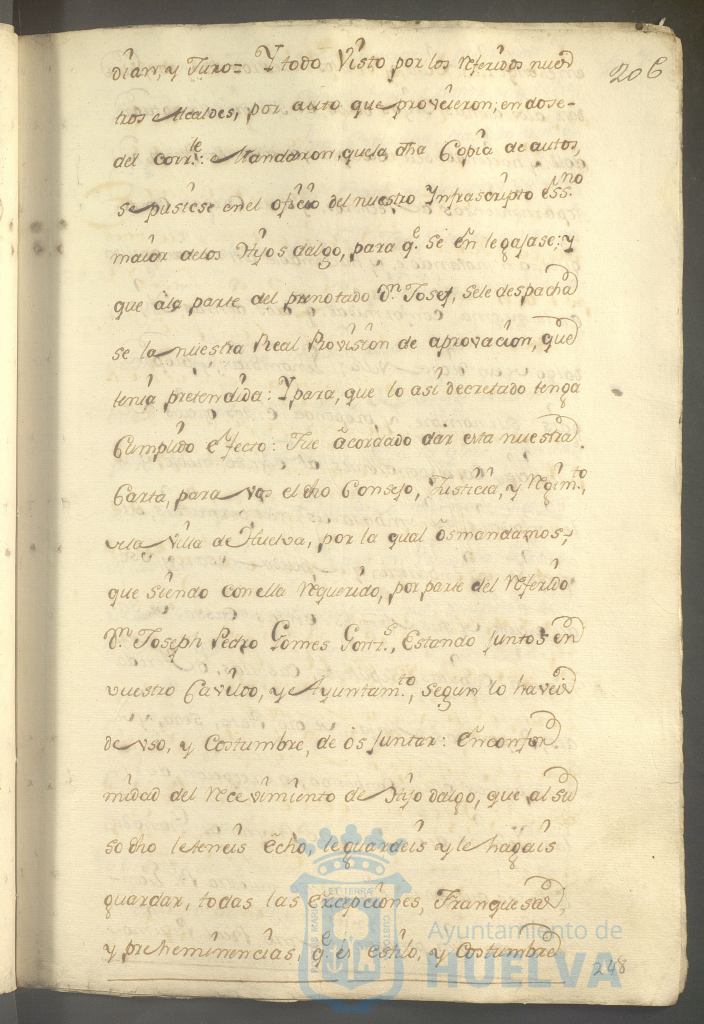 206
dian, y Juro= Y todo Visto por los referidos nues
tros Alcaldes, por auto que proveieron, en dose
del corr.te: Mandaron, que la dha Copia de autos,
se pusiese en el oficio del nuestro Ynfrascripto ess.no
maior delos Hijos dalgo, para q.e se enlegajase; y
que àla parte del prenotado D.n Josef, sele despacha
se la nuestra Real Provision de aprovacion, que
tenia pretendida: Y para, que lo asi decretado tenga
Cumplido efecto: Fue acordado dar esta nuestra
Carta, para vos el dho Consejo, Justicia, y Regim.to,
dela Villa de Huelva, por la qual òs mandamos,
que siendo con ella requerido, por parte del referido
D.n Joseph Pedro Gomes Gonz.s, Estando juntos en
vuestro Cavildo, y Ayuntam.to, segun lo haveis
de vso, y Costumbre, de òs juntar: En confor
midad del recevimiento de Hijo dalgo, que al su
so dho leteneis echo, le guardeis y le hagais
guardar, todas las excepciones, Franquesas,
y preheminencias, q.e es estilo, y Costumbre
248
Ayuntamiento de
HUELVA